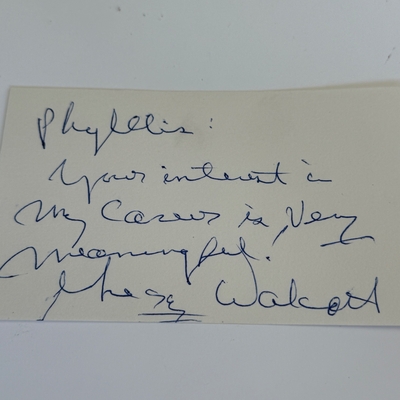 Phyllis:
Your interest in
My Career is Very
meaningful!
Walcott